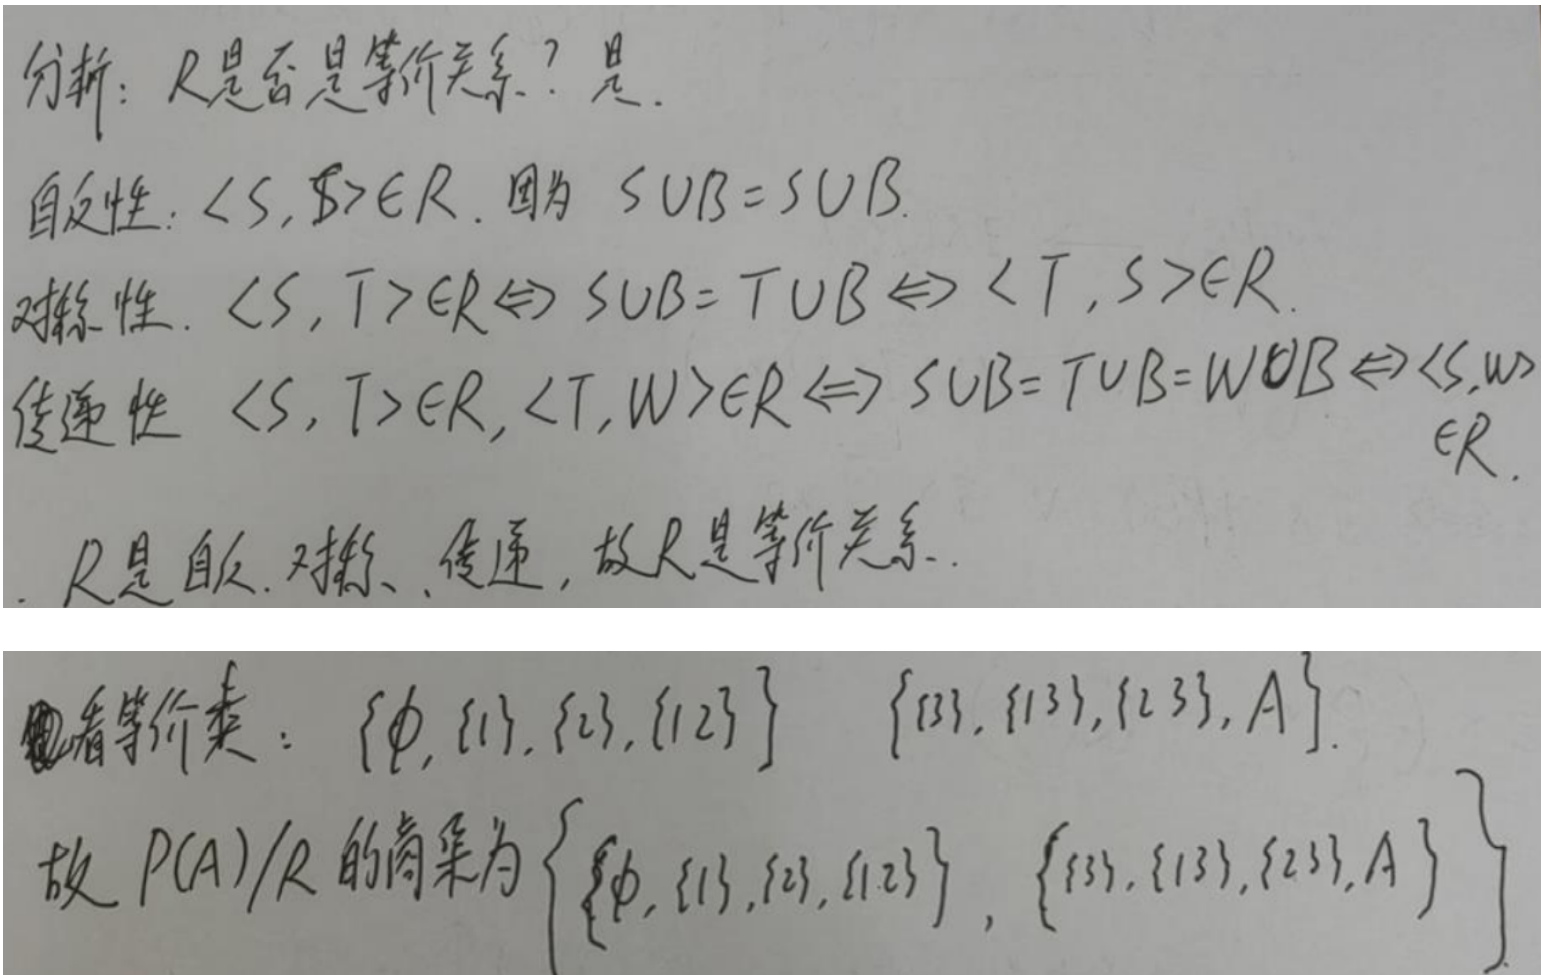 分析: R是否是等价关系? 是.
自反性: <S, S>∈R. 因为 S∪B=S∪B.
对称性. <S, T>∈R⇔ S∪B= T∪B ⇔ <T, S>∈R.
传递性 <S, T>∈R, <T, W>∈R ⇔ S∪B= T∪B=W∪B ⇔ <S,W>
∈R.
. R是自反. 对称、传递, 故R是等价关系.
看等价类: {∅, {1}, {2}, {12}} {{3}, {13}, {23}, A}.
故 P(A)/R 的商集为 {{∅, {1}, {2}, {12}}, {{3}, {13}, {23}, A}}